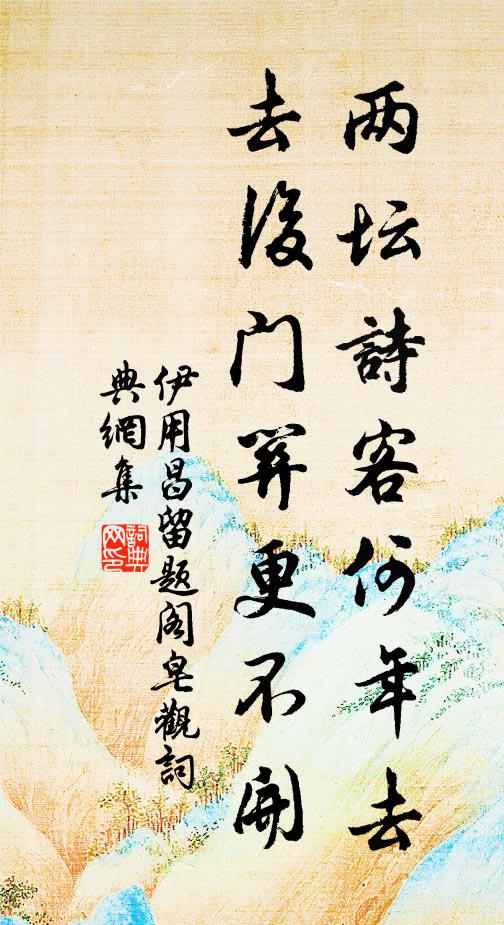 两坛詩客何年去
去後门關更不開
伊用昌留题阁皂觀詞
典網集
詞典
网印